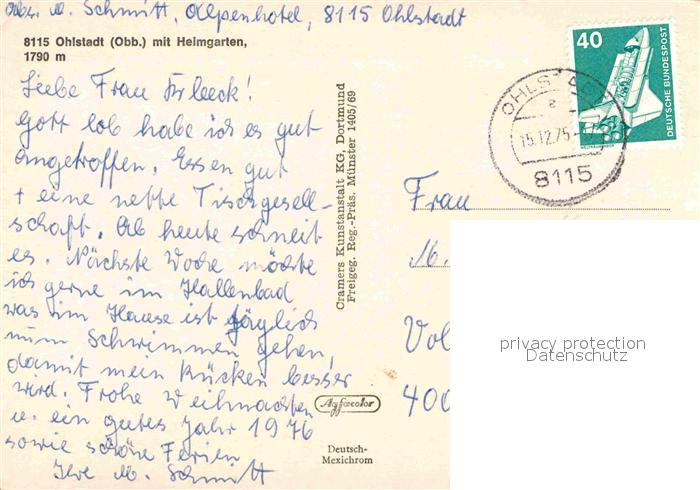 Abs. M. Schmitt, Alpenhotel, 8115 Ohlstadt
8115 Ohlstadt (Obb.) mit Heimgarten,
1790 m
Liebe Frau
Gott lob habe ich es gut
angetroffen. Essen gut
+ eine nette Tischgesell-
schaft. Ab heute schneit
es. Nächste Woche möchte
ich gerne im Hallenbad
was im Hause ist täglich
zum Schwimmen gehen,
damit mein Rücken besser
wird. Frohe Weihnachten
u. ein gutes Jahr 1976
sowie schöne Ferien
Ihre M. Schmitt
Cramers Kunstanstalt KG, Dortmund
Freigeg. Reg.-Präs. Münster 1405/69
Agfacolor
Deutsch-
Mexichrom
40
DEUTSCHE BUNDESPOST
OHLSTADT
15.12.75
8115
Frau
M.
Vol
400
privacy protection
Datenschutz